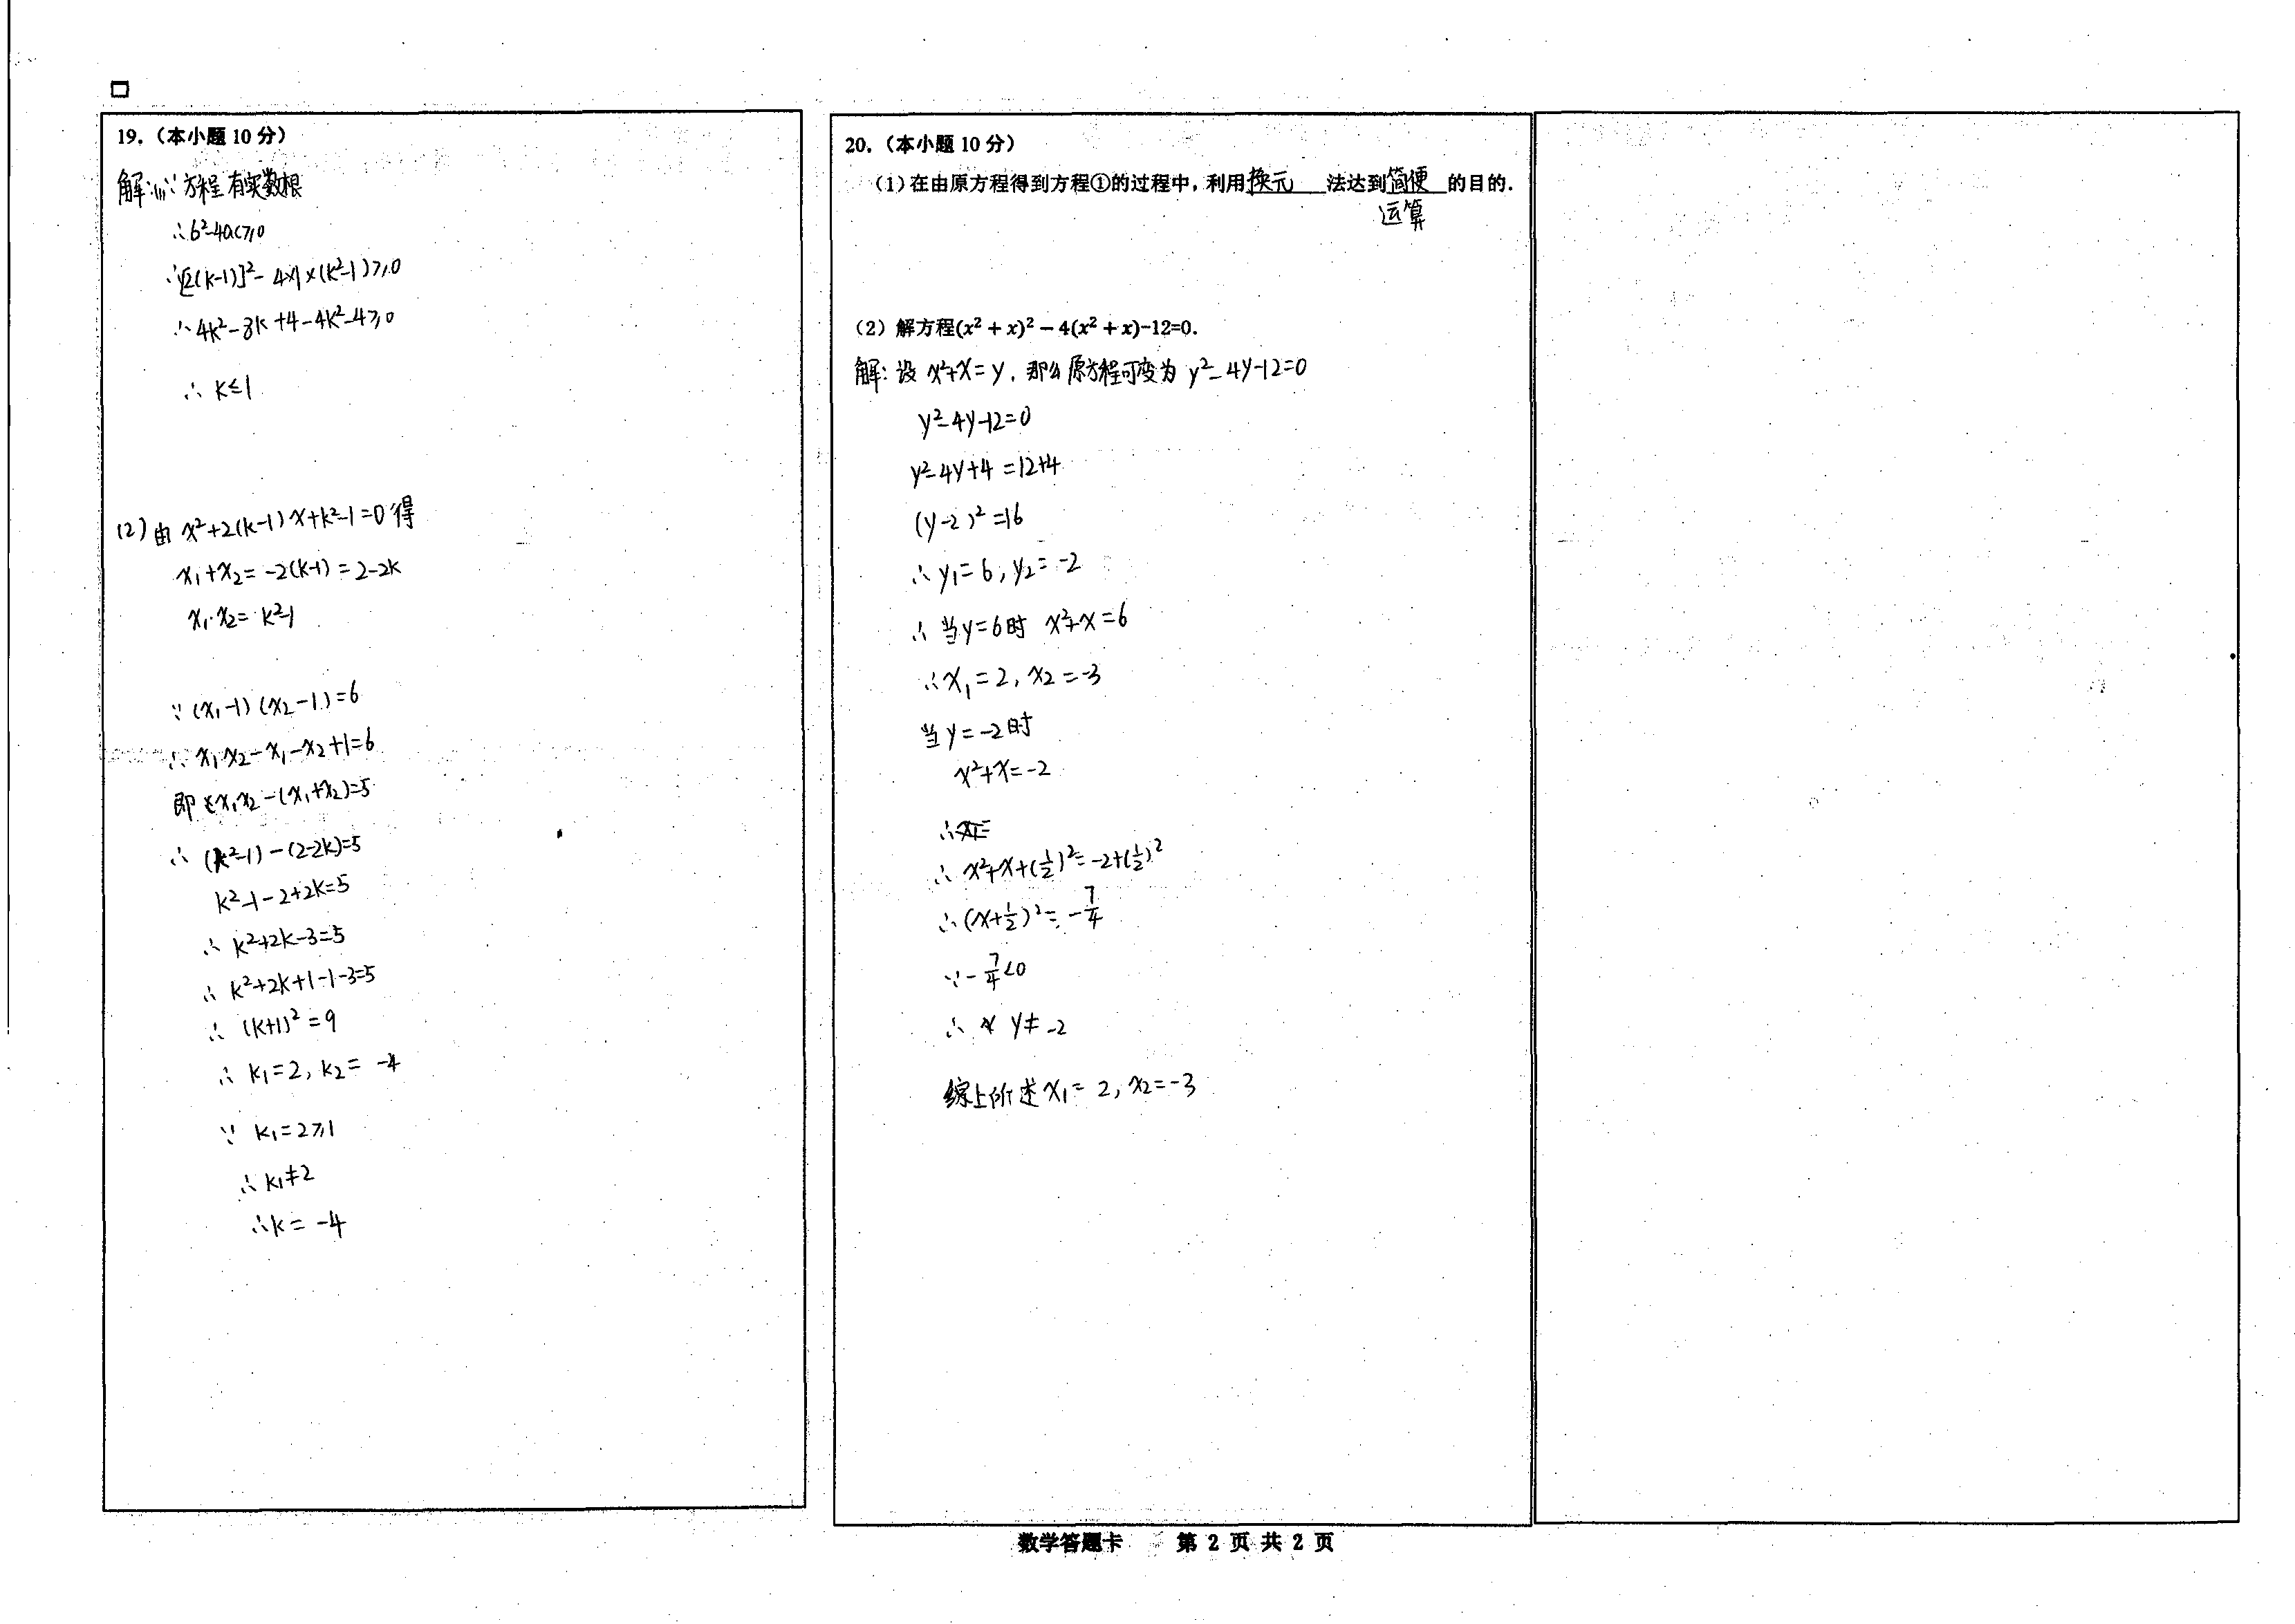 19.（本小题 10 分）
解:(1)∵方程有实数根
∴b²-4ac≥0
∴[2(k-1)]²-4×1×(k²-1)≥0
∴4k²-8k+4-4k²-4≥0
∴ k≤1
(2)由 x²+2(k-1)x+k²-1=0得
x₁+x₂=-2(k-1)=2-2k
x₁·x₂=k²-1
∵(x₁-1)(x₂-1)=6
∴x₁x₂-x₁-x₂+1=6
即x₁x₂-(x₁+x₂)=5
∴(k²-1)-(2-2k)=5
k²-1-2+2k=5
∴k²+2k-3=5
∴k²+2k+1-1-3=5
∴(k+1)²=9
∴k₁=2, k₂=-4
∵k₁=2≥1
∴k₁≠2
∴k=-4
20.（本小题 10 分）
（1）在由原方程得到方程①的过程中，利用换元法达到简便的目的.
运算
（2）解方程(x² + x)² − 4(x² + x)-12=0.
解:设x²+x=y,那么原方程可变为 y²-4y-12=0
y²-4y-12=0
y²-4y+4=12+4
(y-2)²=16
∴y₁=6, y₂=-2
∴当y=6时 x²+x=6
∴x₁=2, x₂=-3
当y=-2时
x²+x=-2
∴x²+x+(1/2)²=-2+(1/2)²
∴(x+1/2)²=-7/4
∵-7/4<0
∴ y≠-2
综上所述x₁=2, x₂=-3
数学答题卡 第 2 页 共 2 页